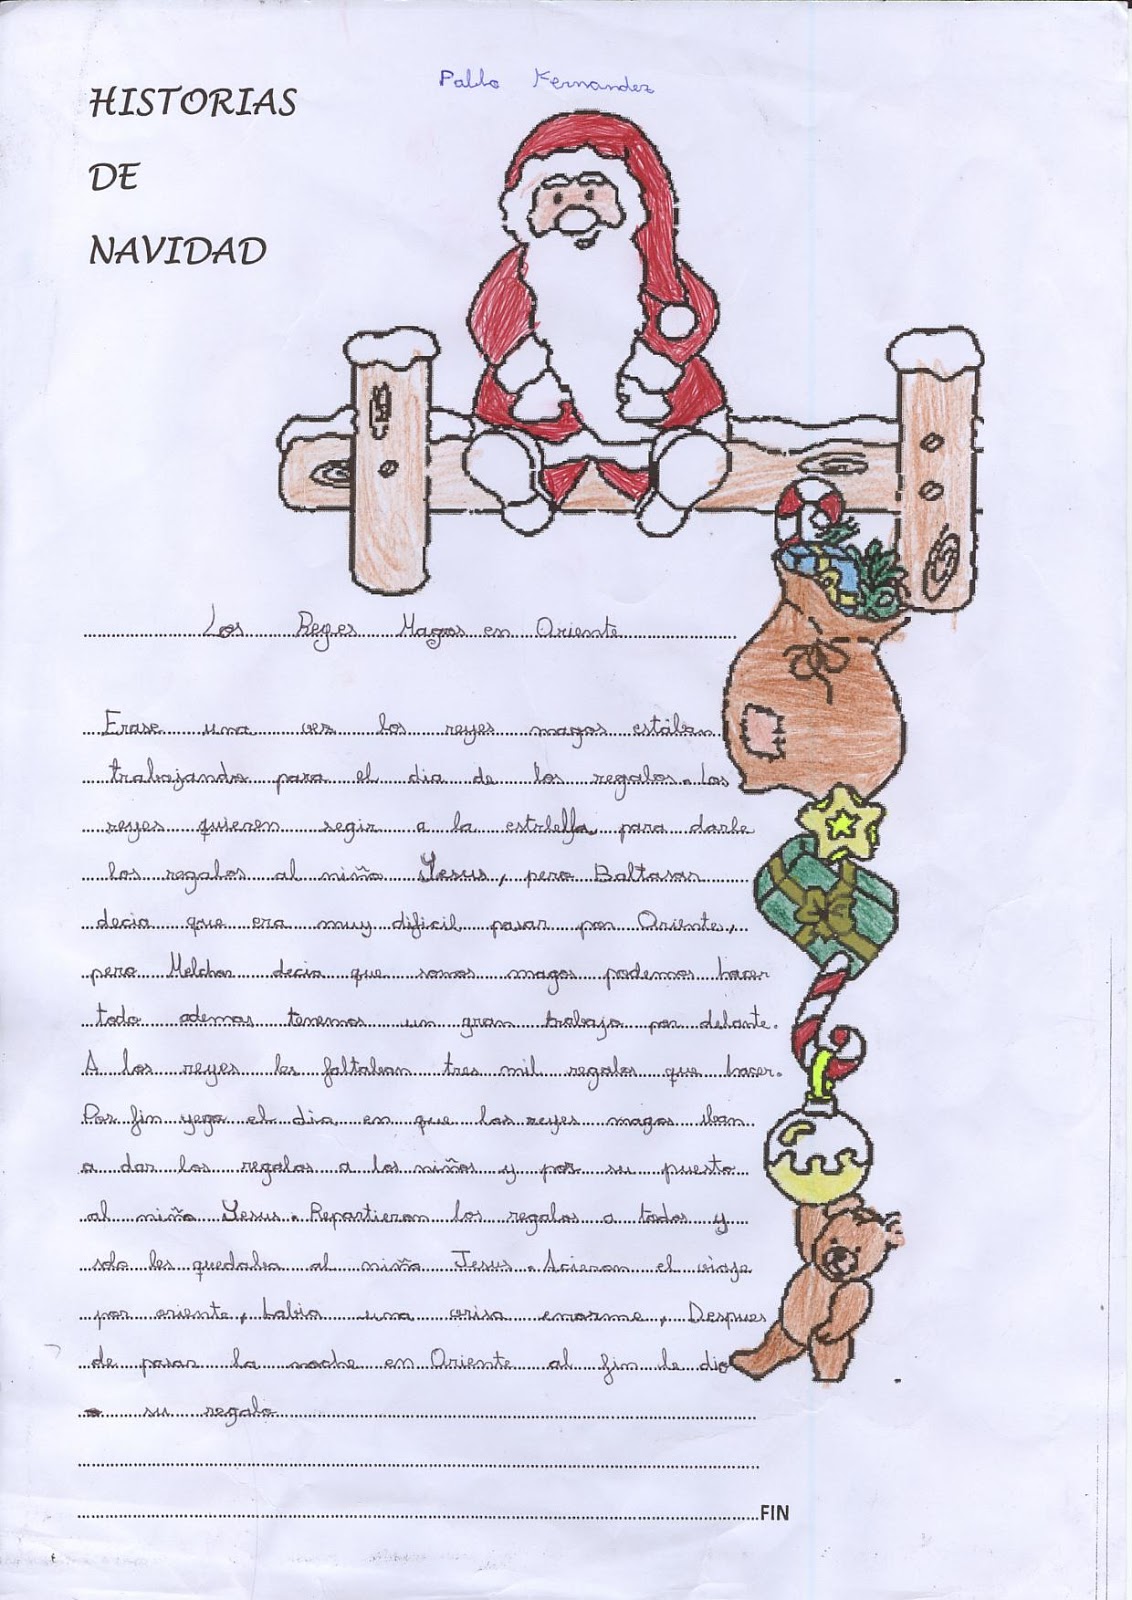 Pablo Fernandez
HISTORIAS
DE
NAVIDAD
Los Reyes Magos en Oriente
Erase una vez los reyes magos estában
trabajando para el dia de los regalos. Los
reyes quieren segir a la estrlella para darle
los regalos al niño Jesus, pero Baltasar
decia que era muy dificil pasar por Oriente,
pero Melchor decia que somos magos podemos hacer
todo ademas tenemos un gran trabajo por delante.
A los reyes les faltaban tres mil regalos que hacer.
Por fin yego el dia en que los reyes magos iban
a dar los regalos a los niños y por su puesto
al niño Jesus. Repartieron los regalos a todos y
solo les quedaba al niño Jesus. Acieron el viaje
por oriente, habia una brisa enorme, Despues
de pasar la noche en Oriente al fin le dio
su regalo
FIN